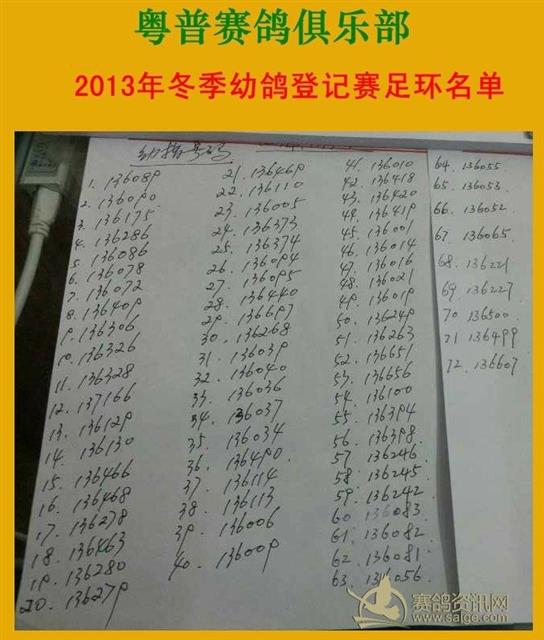 粤普赛鸽俱乐部
2013年冬季幼鸽登记赛足环名单
幼鸽号码
1. 136089
2. 136090
3. 136175
4. 136286
5. 136086
6. 136078
7. 136072
8. 136409
9. 136306
10. 136326
11. 136328
12. 137166
13. 136129
14. 136130
15. 136466
16. 136468
17. 136278
18. 136463
19. 136280
20. 136279
21. 136469
22. 136110
23. 136005
24. 136373
25. 136374
26. 136094
27. 136095
28. 136440
29. 136697
30. 136268
31. 136039
32. 136040
33. 136036
34. 136037
35. 136034
36. 136490
37. 136114
38. 136113
39. 136006
40. 136009
41. 136010
42. 136418
43. 136420
44. 136419
45. 136001
46. 136014
47. 136016
48. 136021
49. 136019
50. 136249
51. 136263
52. 136651
53. 136656
54. 136100
55. 136394
56. 136398
57. 136246
58. 136245
59. 136242
60. 136083
61. 136082
62. 136081
63. 136056
64. 136055
65. 136053
66. 136052
67. 136065
68. 136221
69. 136227
70. 136500
71. 136499
72. 136607
赛鸽资讯网
www.saige.com